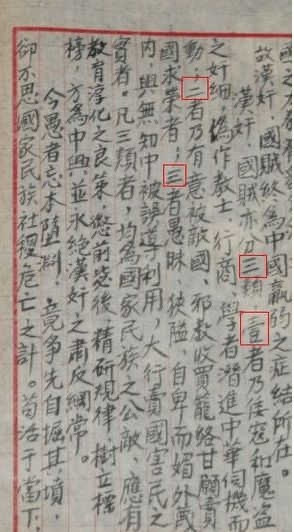 故漢奸，國賊終為中國羸弱之症結所在。
漢奸，國賊亦分三類，壹者乃倭寇和魔盗
之奸細，後作教士，行商，學者潛進中華伺機而
動；二者乃有意被敵國、邪教收買籠絡甘願賣
國求榮者；三者愚昧，狹隘，自卑而媚外或
內，與無知中被誘導利用，大行賣國害民之
實者。凡三類者，均為國家民族之公敵，應有
教育淳化之良策，懲前毖後，精研規律，樹立標
榜，方為中興，並永絕漢奸之肅反綱常。
今愚者忘本墮淵，竟争先自掘其墳，
卻不思國家民族社稷危亡之計。苟活于當下，